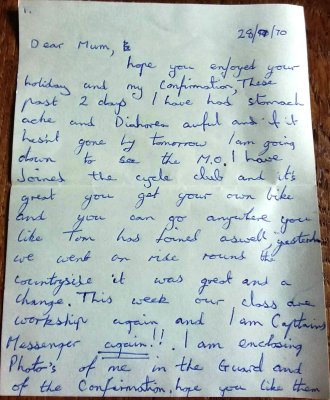 1.
28/9/70
Dear Mum,
hope you enjoyed your
holiday and my confirmation, These
past 2 days I have had stomach
ache and Diahorea awful and if it
hasn't gone by tomorrow I am going
down to see the M.O. I have
Joined the cycle club and it's
great you get your own bike
and you can go anywhere you
like Tom has Joined aswell yesterday
we went on ride round the
countrysise it was great and a
change. This week our class are
workship again and I am Captains
Messenger again!!. I am enclosing
Photo's of me in the Guard and
of the Confirmation. hope you like them